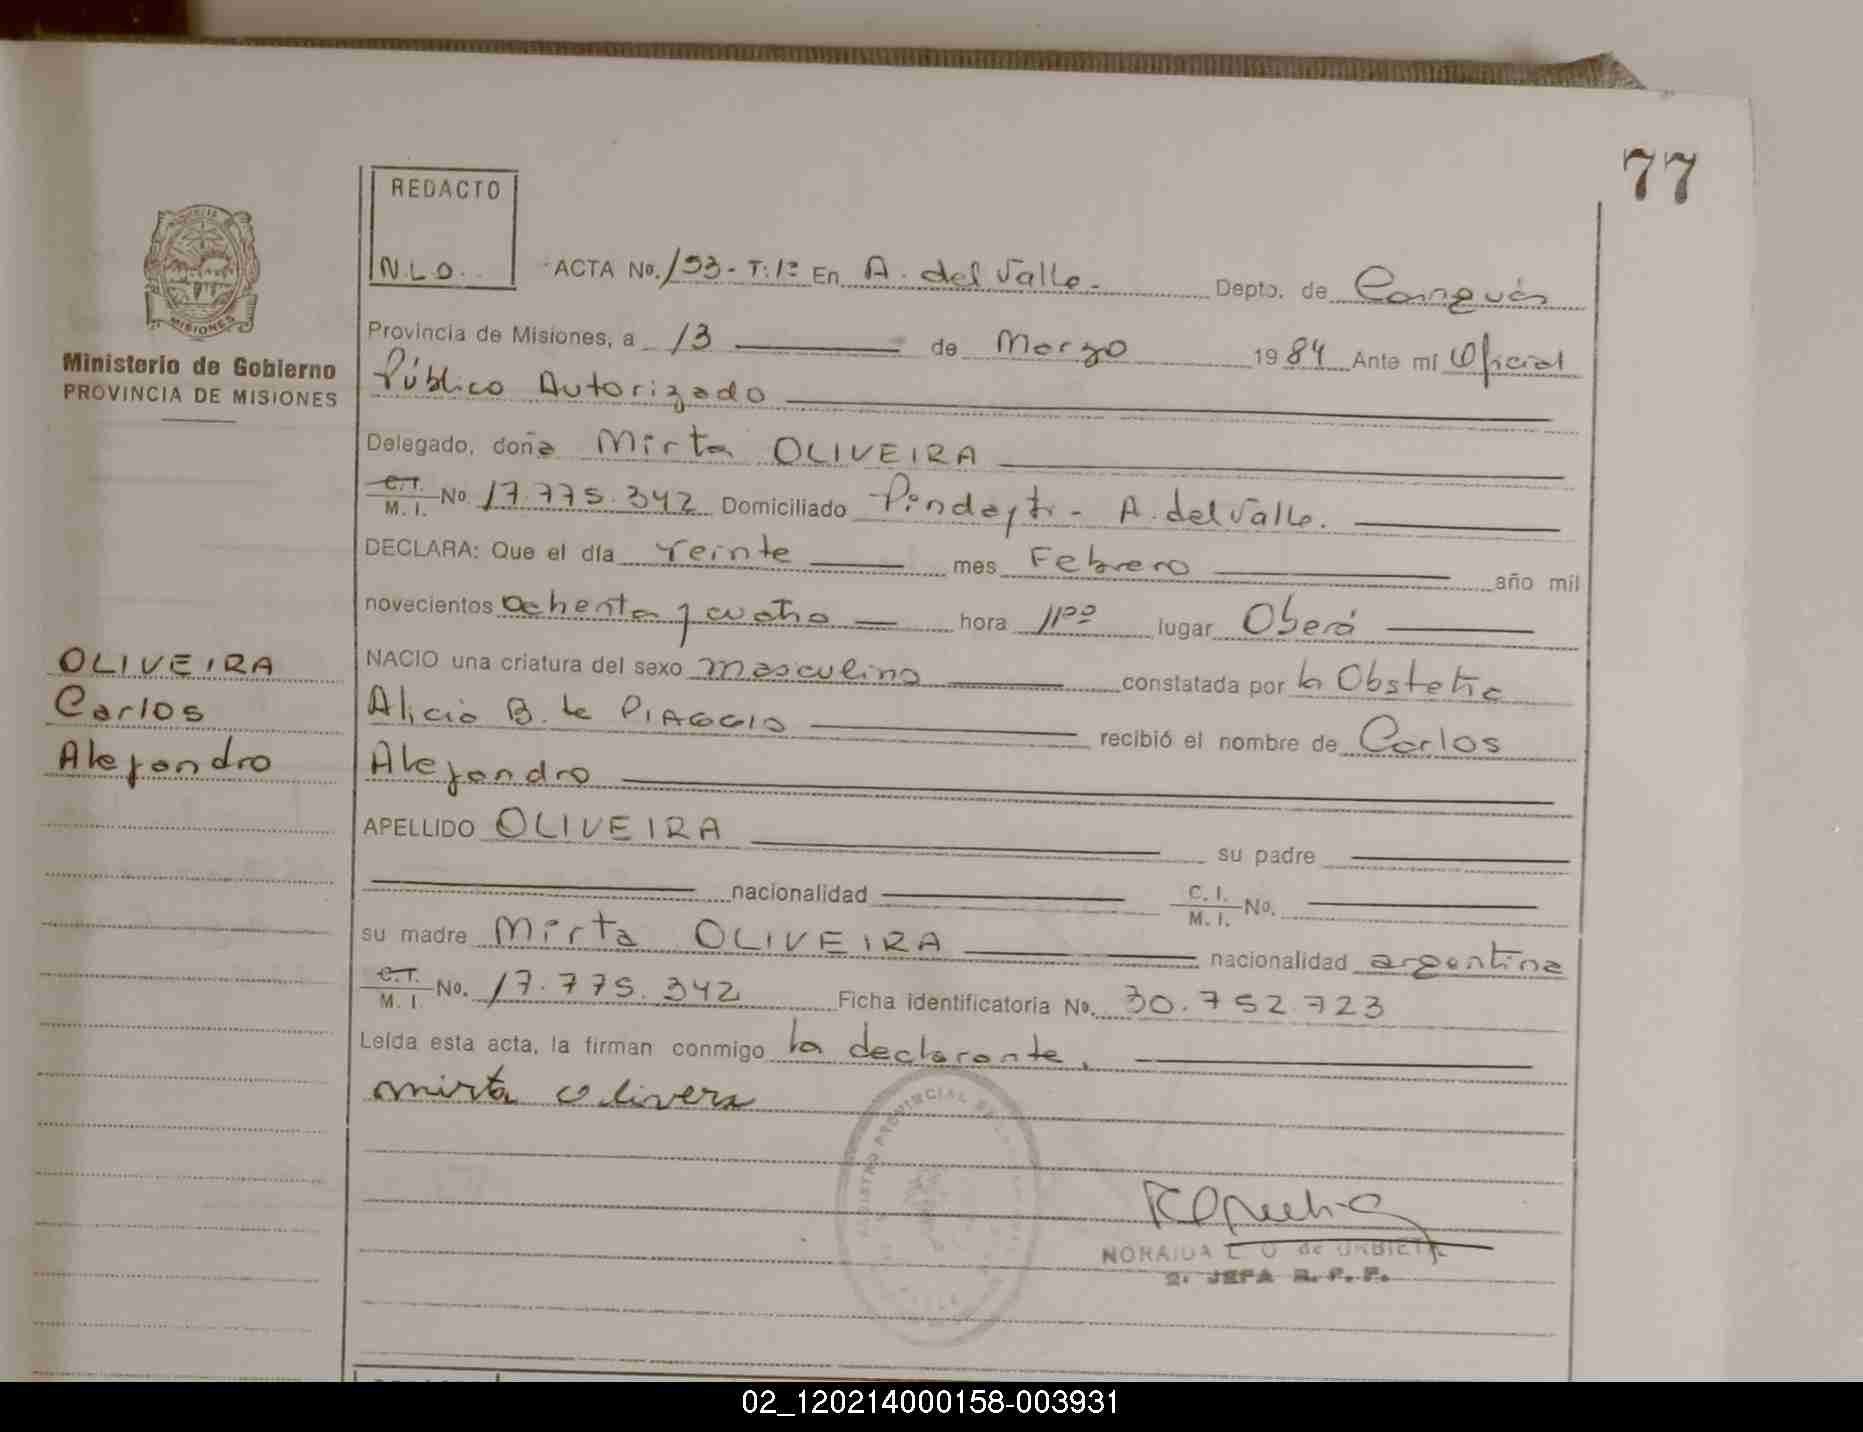 77
REDACTO
N.L.O.
ACTA No. 153-T:1º En A. del Valle.- Depto. de Cainguás
MISIONES
Ministerio de Gobierno
PROVINCIA DE MISIONES
Provincia de Misiones, a 13 de Marzo 1984 Ante mí Oficial
Público Autorizado
Delegado, doña Mirta OLIVEIRA
C.I. M.I. No. 17.775.342 Domiciliado Pindayti - A. del Valle.
DECLARA: Que el día veinte mes Febrero año mil
novecientos ochenta y cuatro hora 11ºº lugar Oberá
OLIVEIRA
Carlos
Alejandro
NACIO una criatura del sexo masculino constatada por la Obstetra
Alicia B. de PIAGGIO recibió el nombre de Carlos
Alejandro
APELLIDO OLIVEIRA su padre
nacionalidad C.I. M.I. No.
su madre Mirta OLIVEIRA nacionalidad argentina
C.I. M.I. No. 17.775.342 Ficha identificatoria No. 30.752.723
Leída esta acta, la firman conmigo la declarante.
mirta olivera
NORAIDA L. O de URBIETA
2. JEFA R.P.P.
02_120214000158-003931